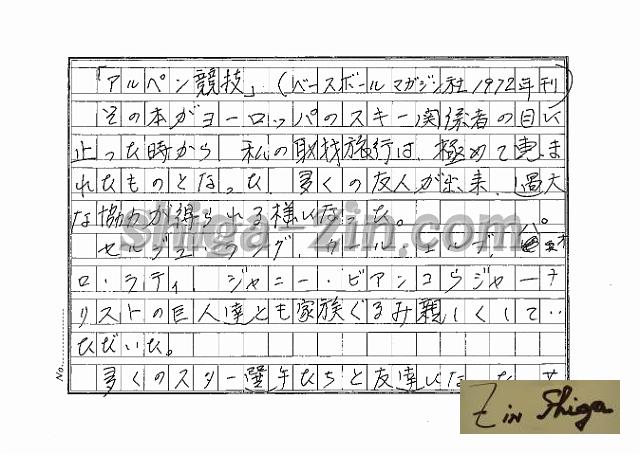 「アルペン競技」(ベースボールマガジン社1972年刊)
その本がヨーロッパのスキー関係者の目に
止った時から 私の取材旅行は、極めて恵ま
れたものとなった。多くの友人が出来、過大
な協力が得られる様になった。
セルジュ・ラング、カール・エルプ、
ロ・ラティ ジャニー・ビアンコらジャーナ
リストの巨人達とも家族ぐるみ親しくして‥
ただいた。
多くのスター選手たちと友達になった
No.
Shiga-zin.com
Z in Shiga